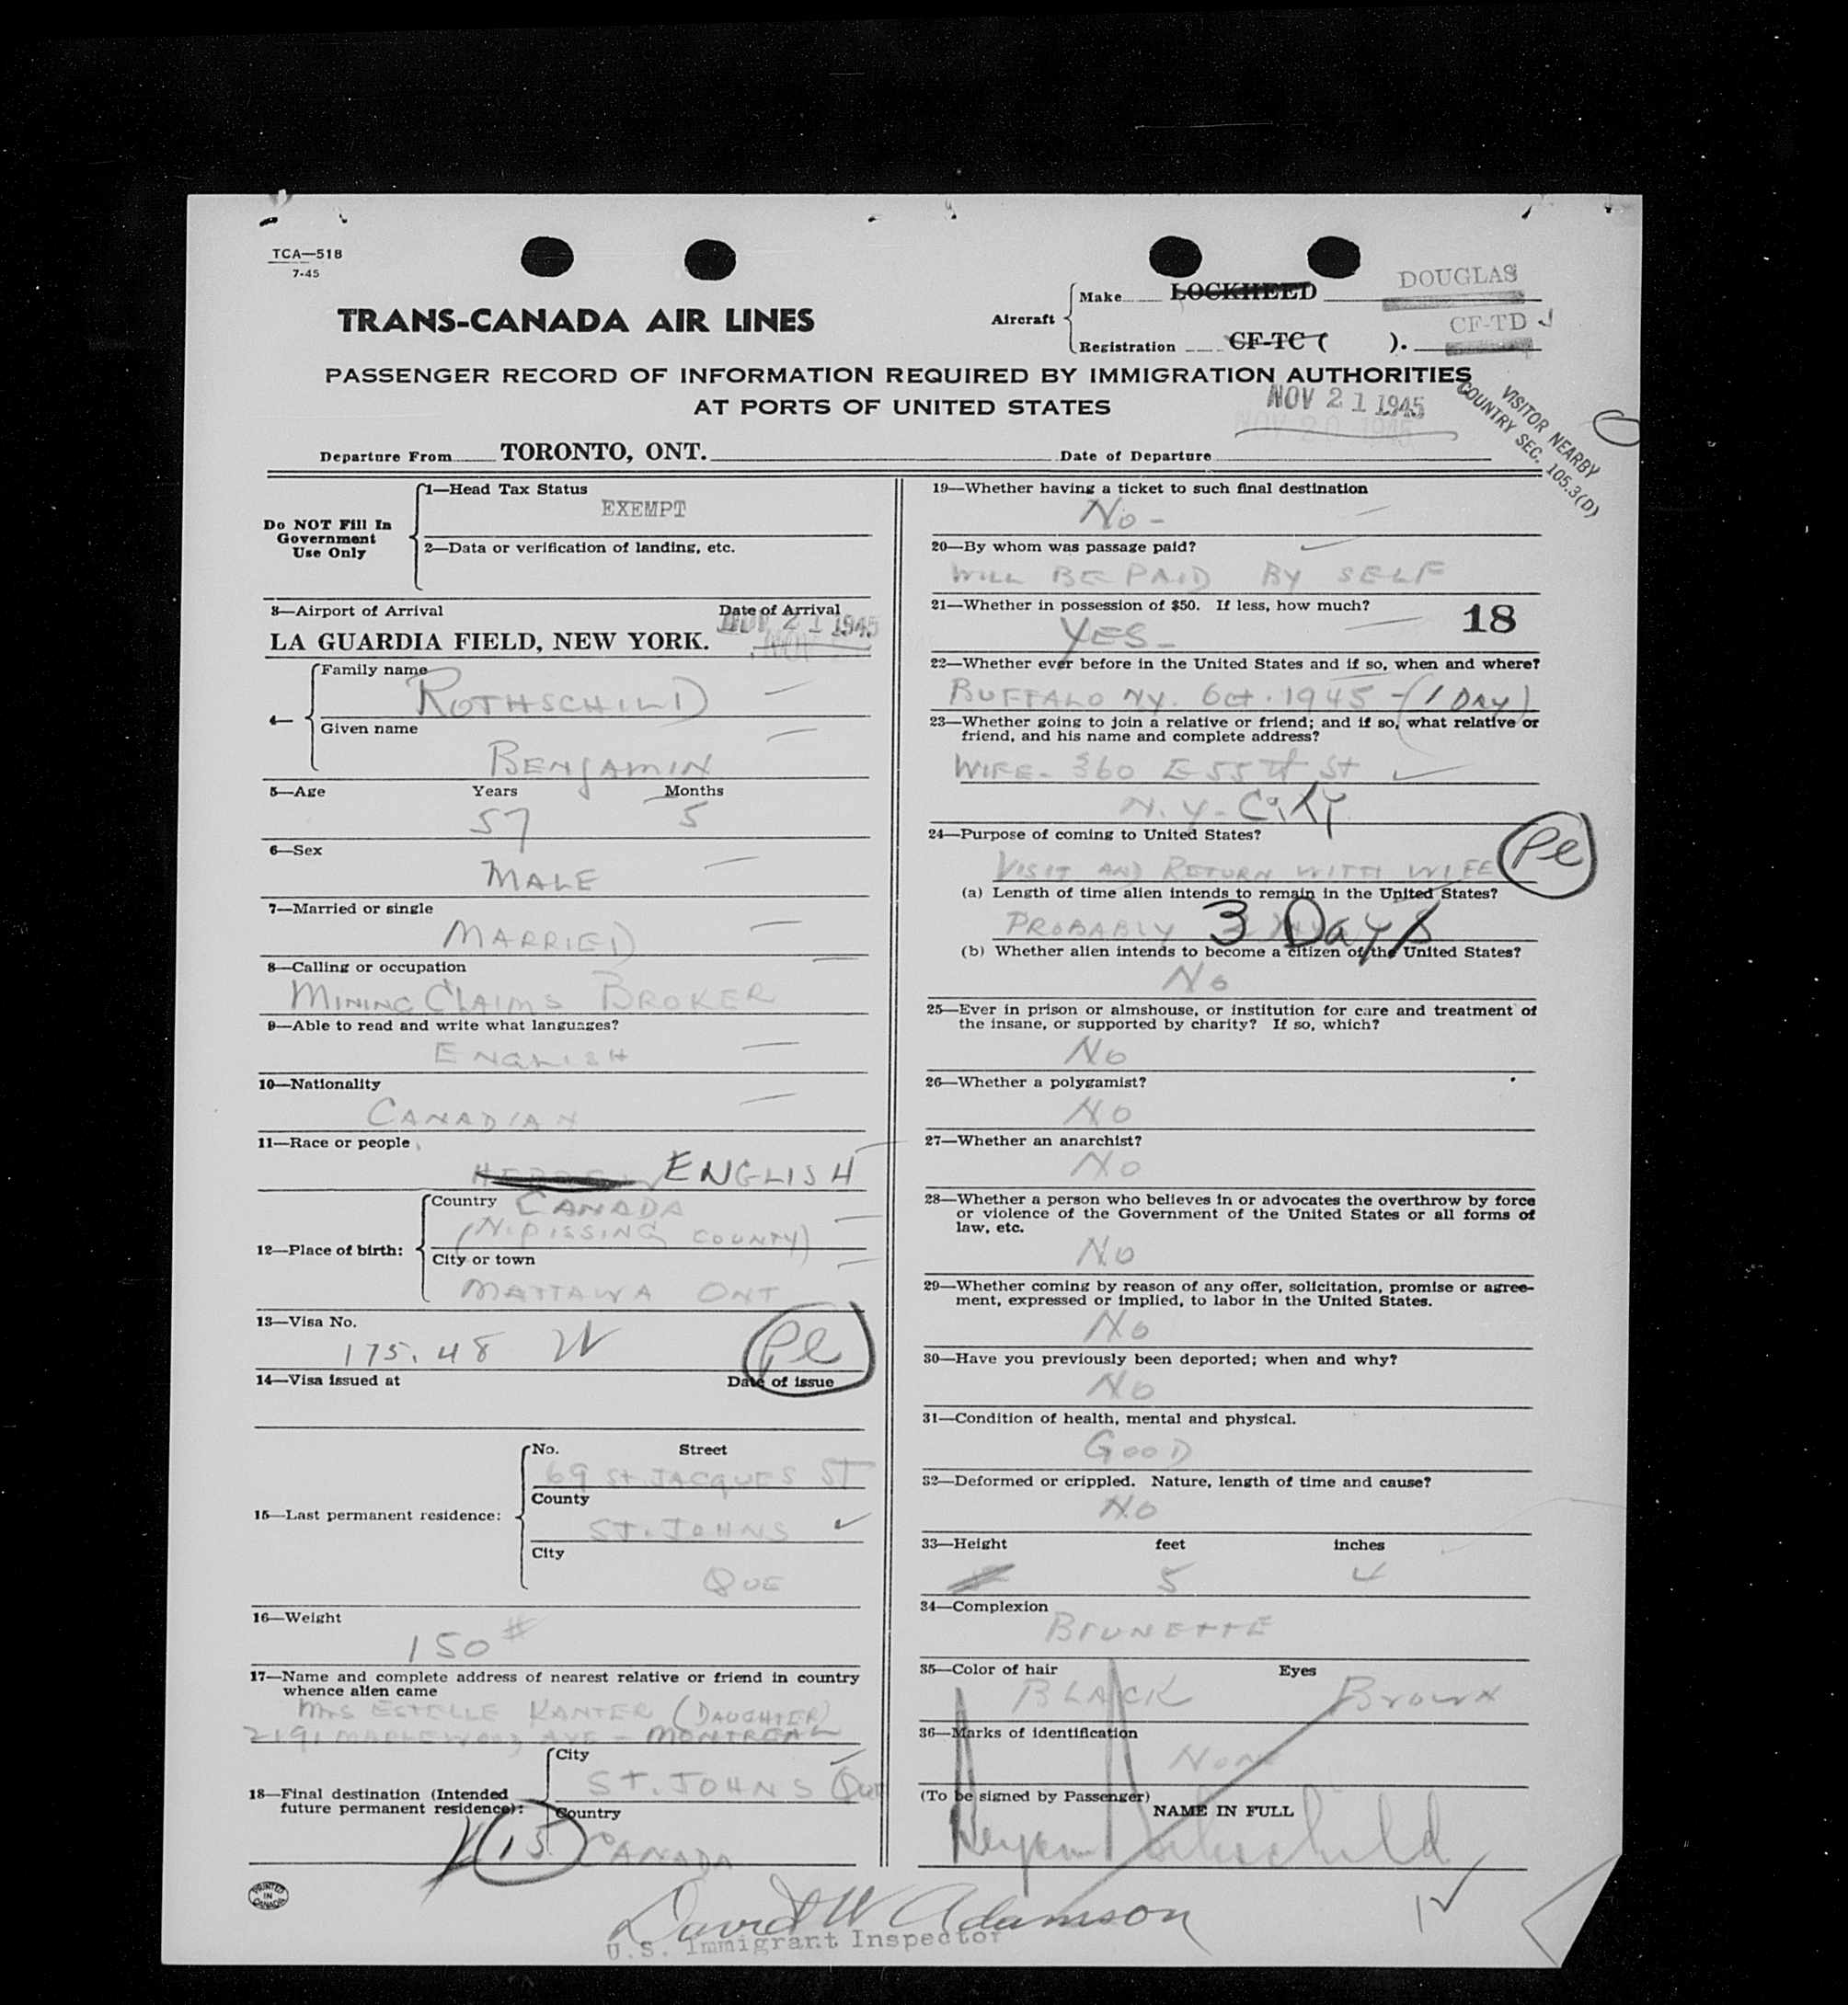 TCA—518
7-45
Make LOCKHEED DOUGLAS
TRANS-CANADA AIR LINES
Aircraft
Registration CF-TC ( ). CF-TD
PASSENGER RECORD OF INFORMATION REQUIRED BY IMMIGRATION AUTHORITIES
AT PORTS OF UNITED STATES
NOV 21 1945
NOV 20 1945
VISITOR NEARBY
COUNTRY SEC. 105.3(D)
Departure From TORONTO, ONT. Date of Departure
Do NOT Fill In
Government
Use Only
1—Head Tax Status
EXEMPT
2—Data or verification of landing, etc.
3—Airport of Arrival Date of Arrival
LA GUARDIA FIELD, NEW YORK. NOV 21 1945
4—
Family name
ROTHSCHILD
Given name
BENJAMIN
5—Age Years Months
57 5
6—Sex
MALE
7—Married or single
MARRIED
8—Calling or occupation
MINING CLAIMS BROKER
9—Able to read and write what languages?
ENGLISH
10—Nationality
CANADIAN
11—Race or people
HEBREW ENGLISH
12—Place of birth:
Country CANADA
(NIPISSING COUNTY)
City or town
MATTAWA ONT
13—Visa No.
175.48 W Pl
14—Visa issued at Date of issue
15—Last permanent residence:
No. Street
69 St. JACQUES ST
County
ST. JOHNS
City
QUE
16—Weight
150 #
17—Name and complete address of nearest relative or friend in country
whence alien came
MRS ESTELLE KANTER (DAUGHTER)
2191 MAPLEWOOD AVE - MONTREAL
18—Final destination (Intended
future permanent residence):
City
ST. JOHNS QUE
Country
15 CANADA
19—Whether having a ticket to such final destination
No -
20—By whom was passage paid?
WILL BE PAID BY SELF
21—Whether in possession of $50. If less, how much? 18
YES -
22—Whether ever before in the United States and if so, when and where?
BUFFALO N.Y. Oct. 1945 - (1 DAY)
23—Whether going to join a relative or friend; and if so, what relative or
friend, and his name and complete address?
WIFE - 360 E 55th St
N.Y. City
24—Purpose of coming to United States?
VISIT AND RETURN WITH WIFE Pl
(a) Length of time alien intends to remain in the United States?
PROBABLY 3 Days
(b) Whether alien intends to become a citizen of the United States?
No
25—Ever in prison or almshouse, or institution for care and treatment of
the insane, or supported by charity? If so, which?
No
26—Whether a polygamist?
NO
27—Whether an anarchist?
NO
28—Whether a person who believes in or advocates the overthrow by force
or violence of the Government of the United States or all forms of
law, etc.
NO
29—Whether coming by reason of any offer, solicitation, promise or agree-
ment, expressed or implied, to labor in the United States.
No
30—Have you previously been deported; when and why?
NO
31—Condition of health, mental and physical.
GOOD
32—Deformed or crippled. Nature, length of time and cause?
NO
33—Height feet inches
5 4
34—Complexion
BRUNETTE
35—Color of hair Eyes
BLACK BROWN
36—Marks of identification
NONE
(To be signed by Passenger)
NAME IN FULL
Benjamin Rothschild
PRINTED
IN
CANADA
David W Adamson
U.S. Immigrant Inspector